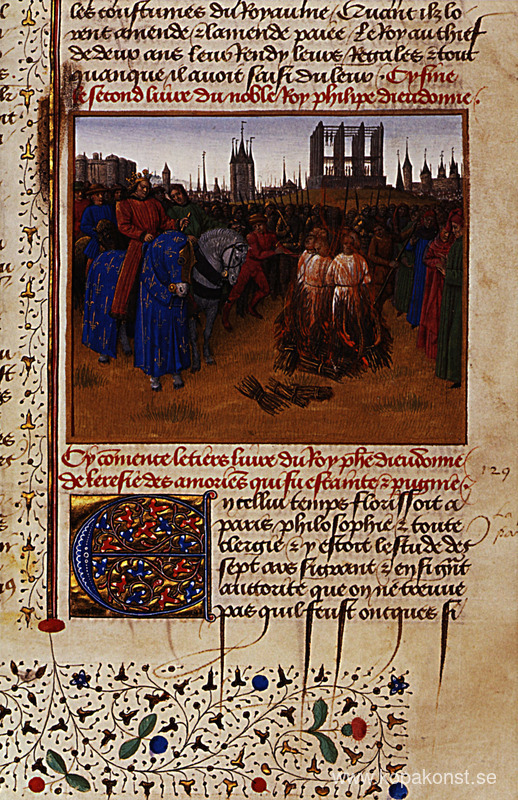 les coustumes du Royaume. Quant ilz lo
rent amende & lamende paiee. Le Roy au chief
de deux ans leur Rendy leurs Regales & tout
quanque il auoit saisi du leur. Cy fine
le second liure du noble Roy phelipe dieudonne.
Cy comence le tiers liure du Roy phe dieudonne
de leresie des amoriens qui fu estainte & pugnie.
En icellui temps florissoit a
paris philosophie & toute
clergie & y estoit lestude des
sept ars si grant & en si grant
auctorite que on ne treuue
pas quil feust oncques si
129
www.kopakonst.se